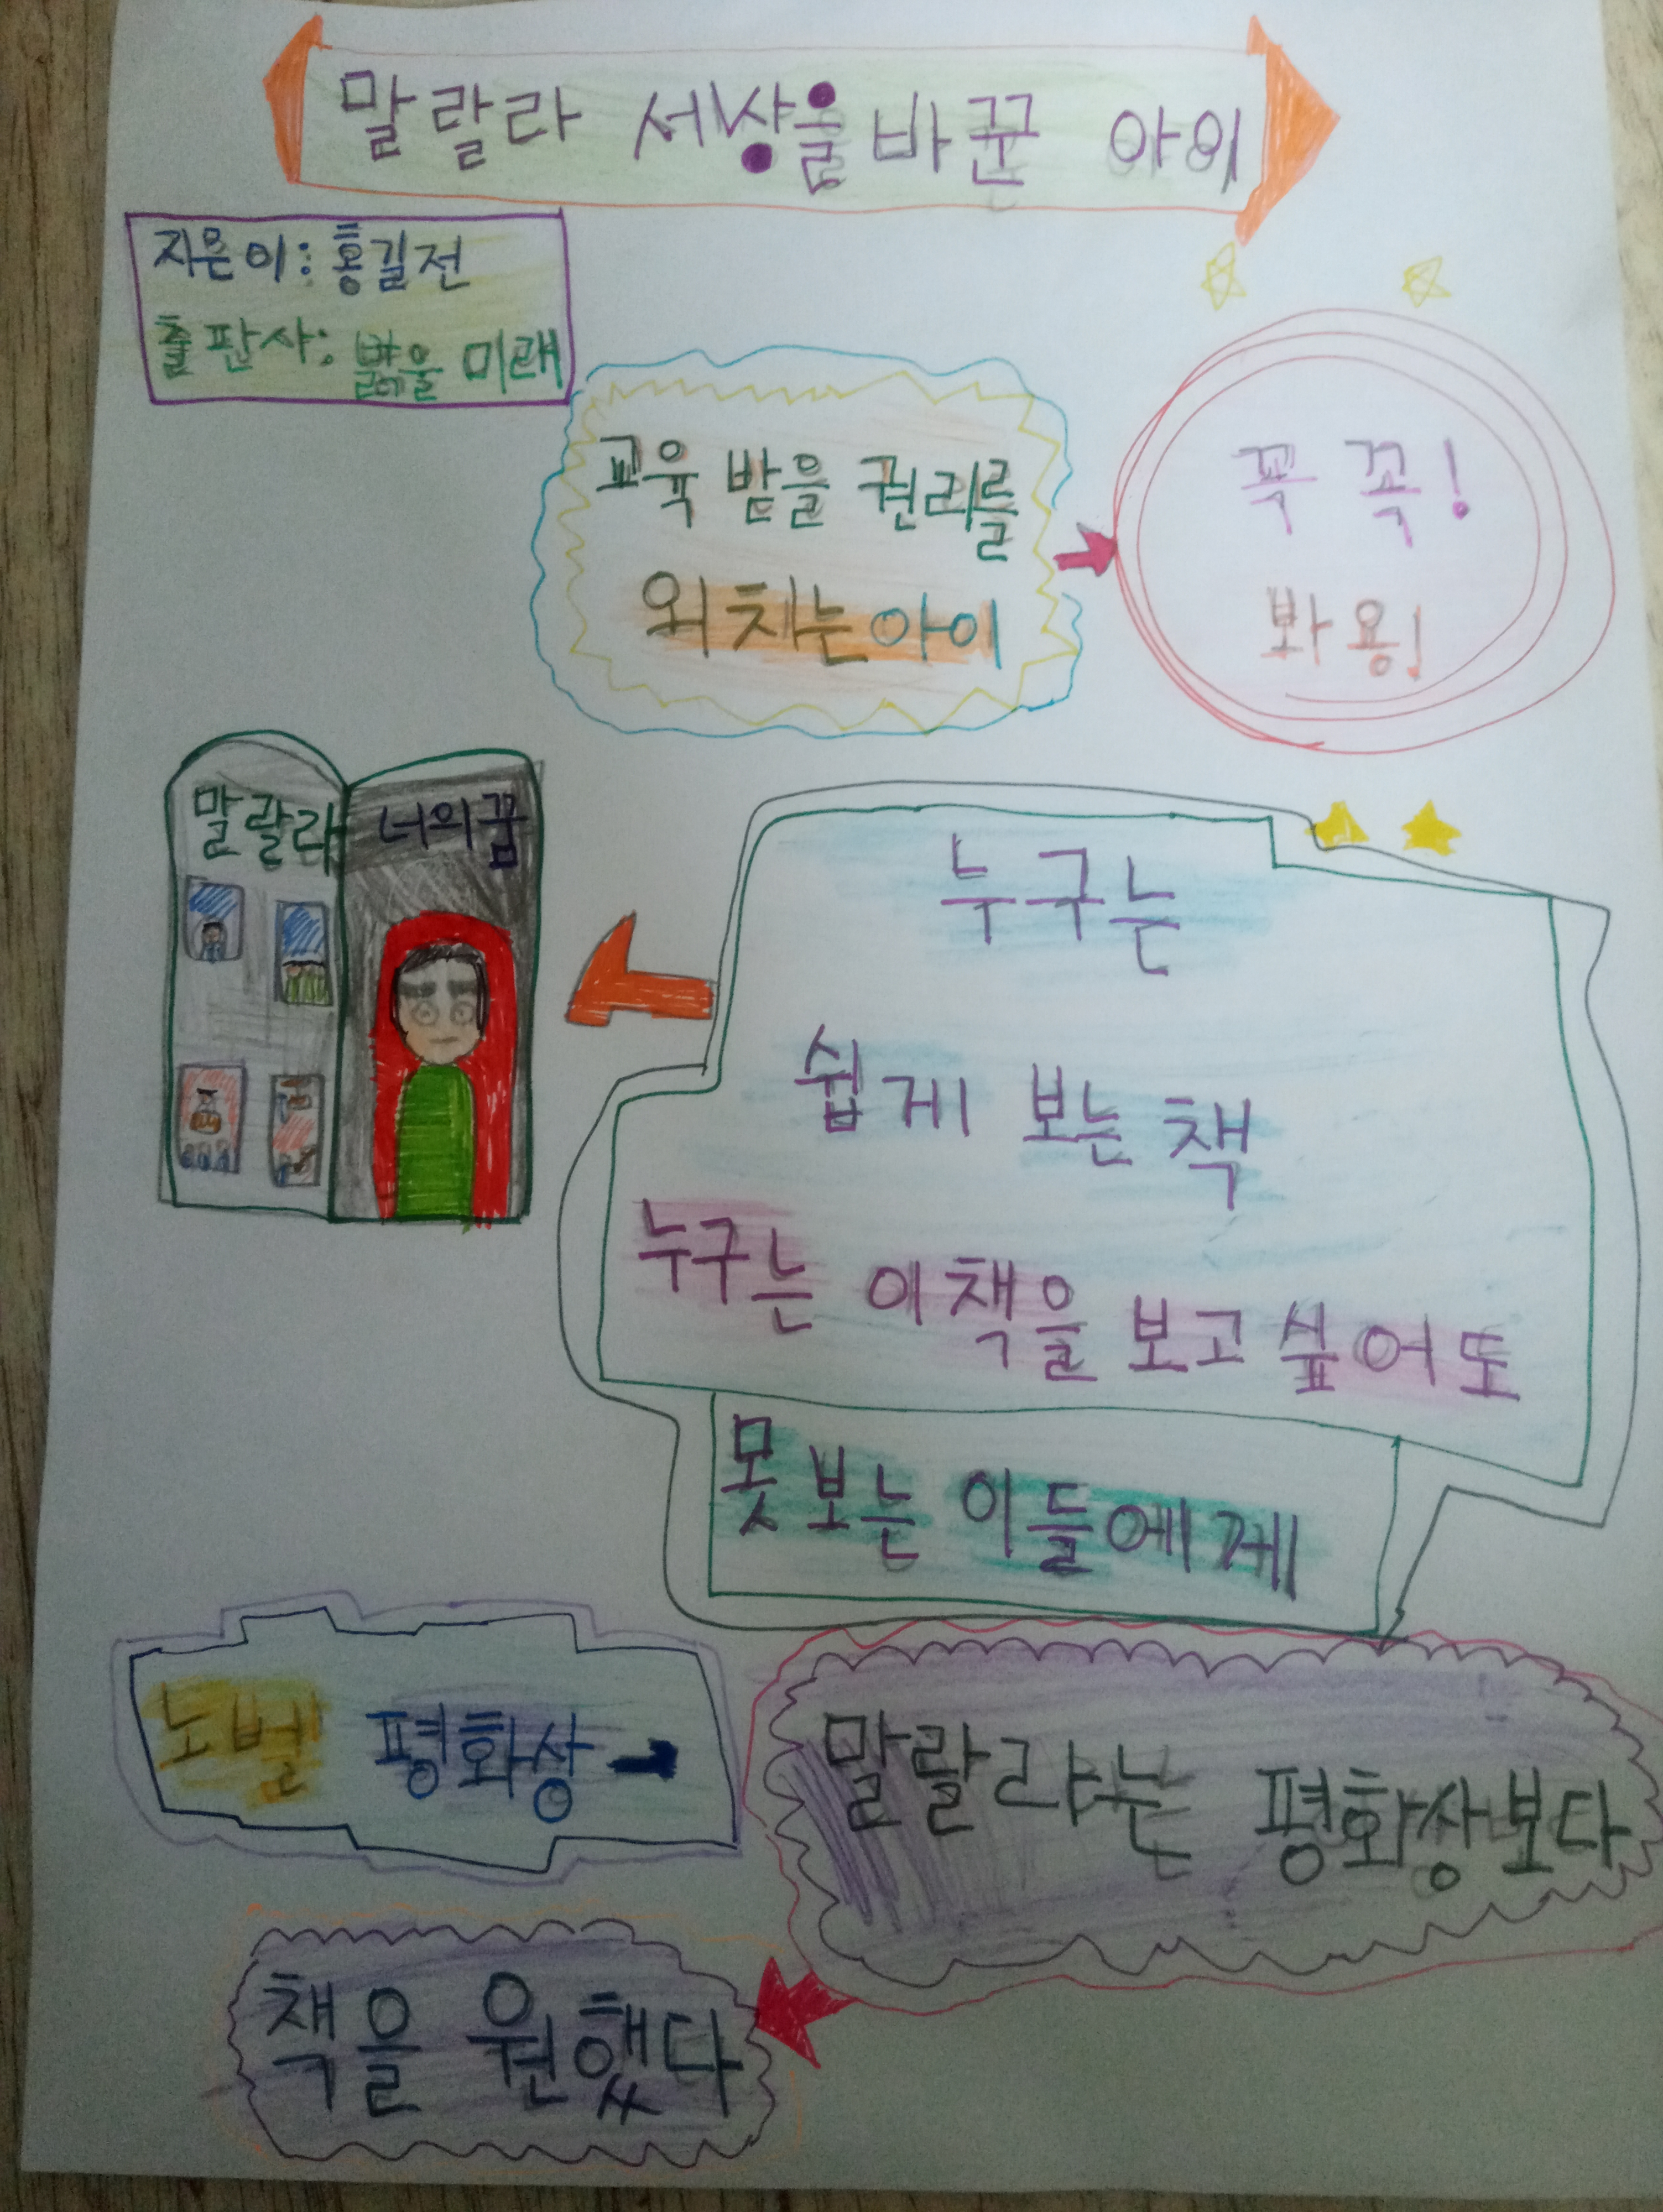 말랄라 세상을 바꾼 아이
지은이: 홍길전
출판사: 을 미래
교육 받을 권리를
외치는 아이
꼭 꼭!
봐용!
말랄라
너의 꿈
누구는
쉽게 보는 책
누구는 이 책을 보고 싶어도
못 보는 이들에게
노벨 평화상
말랄라는 평화상보다
책을 원했다